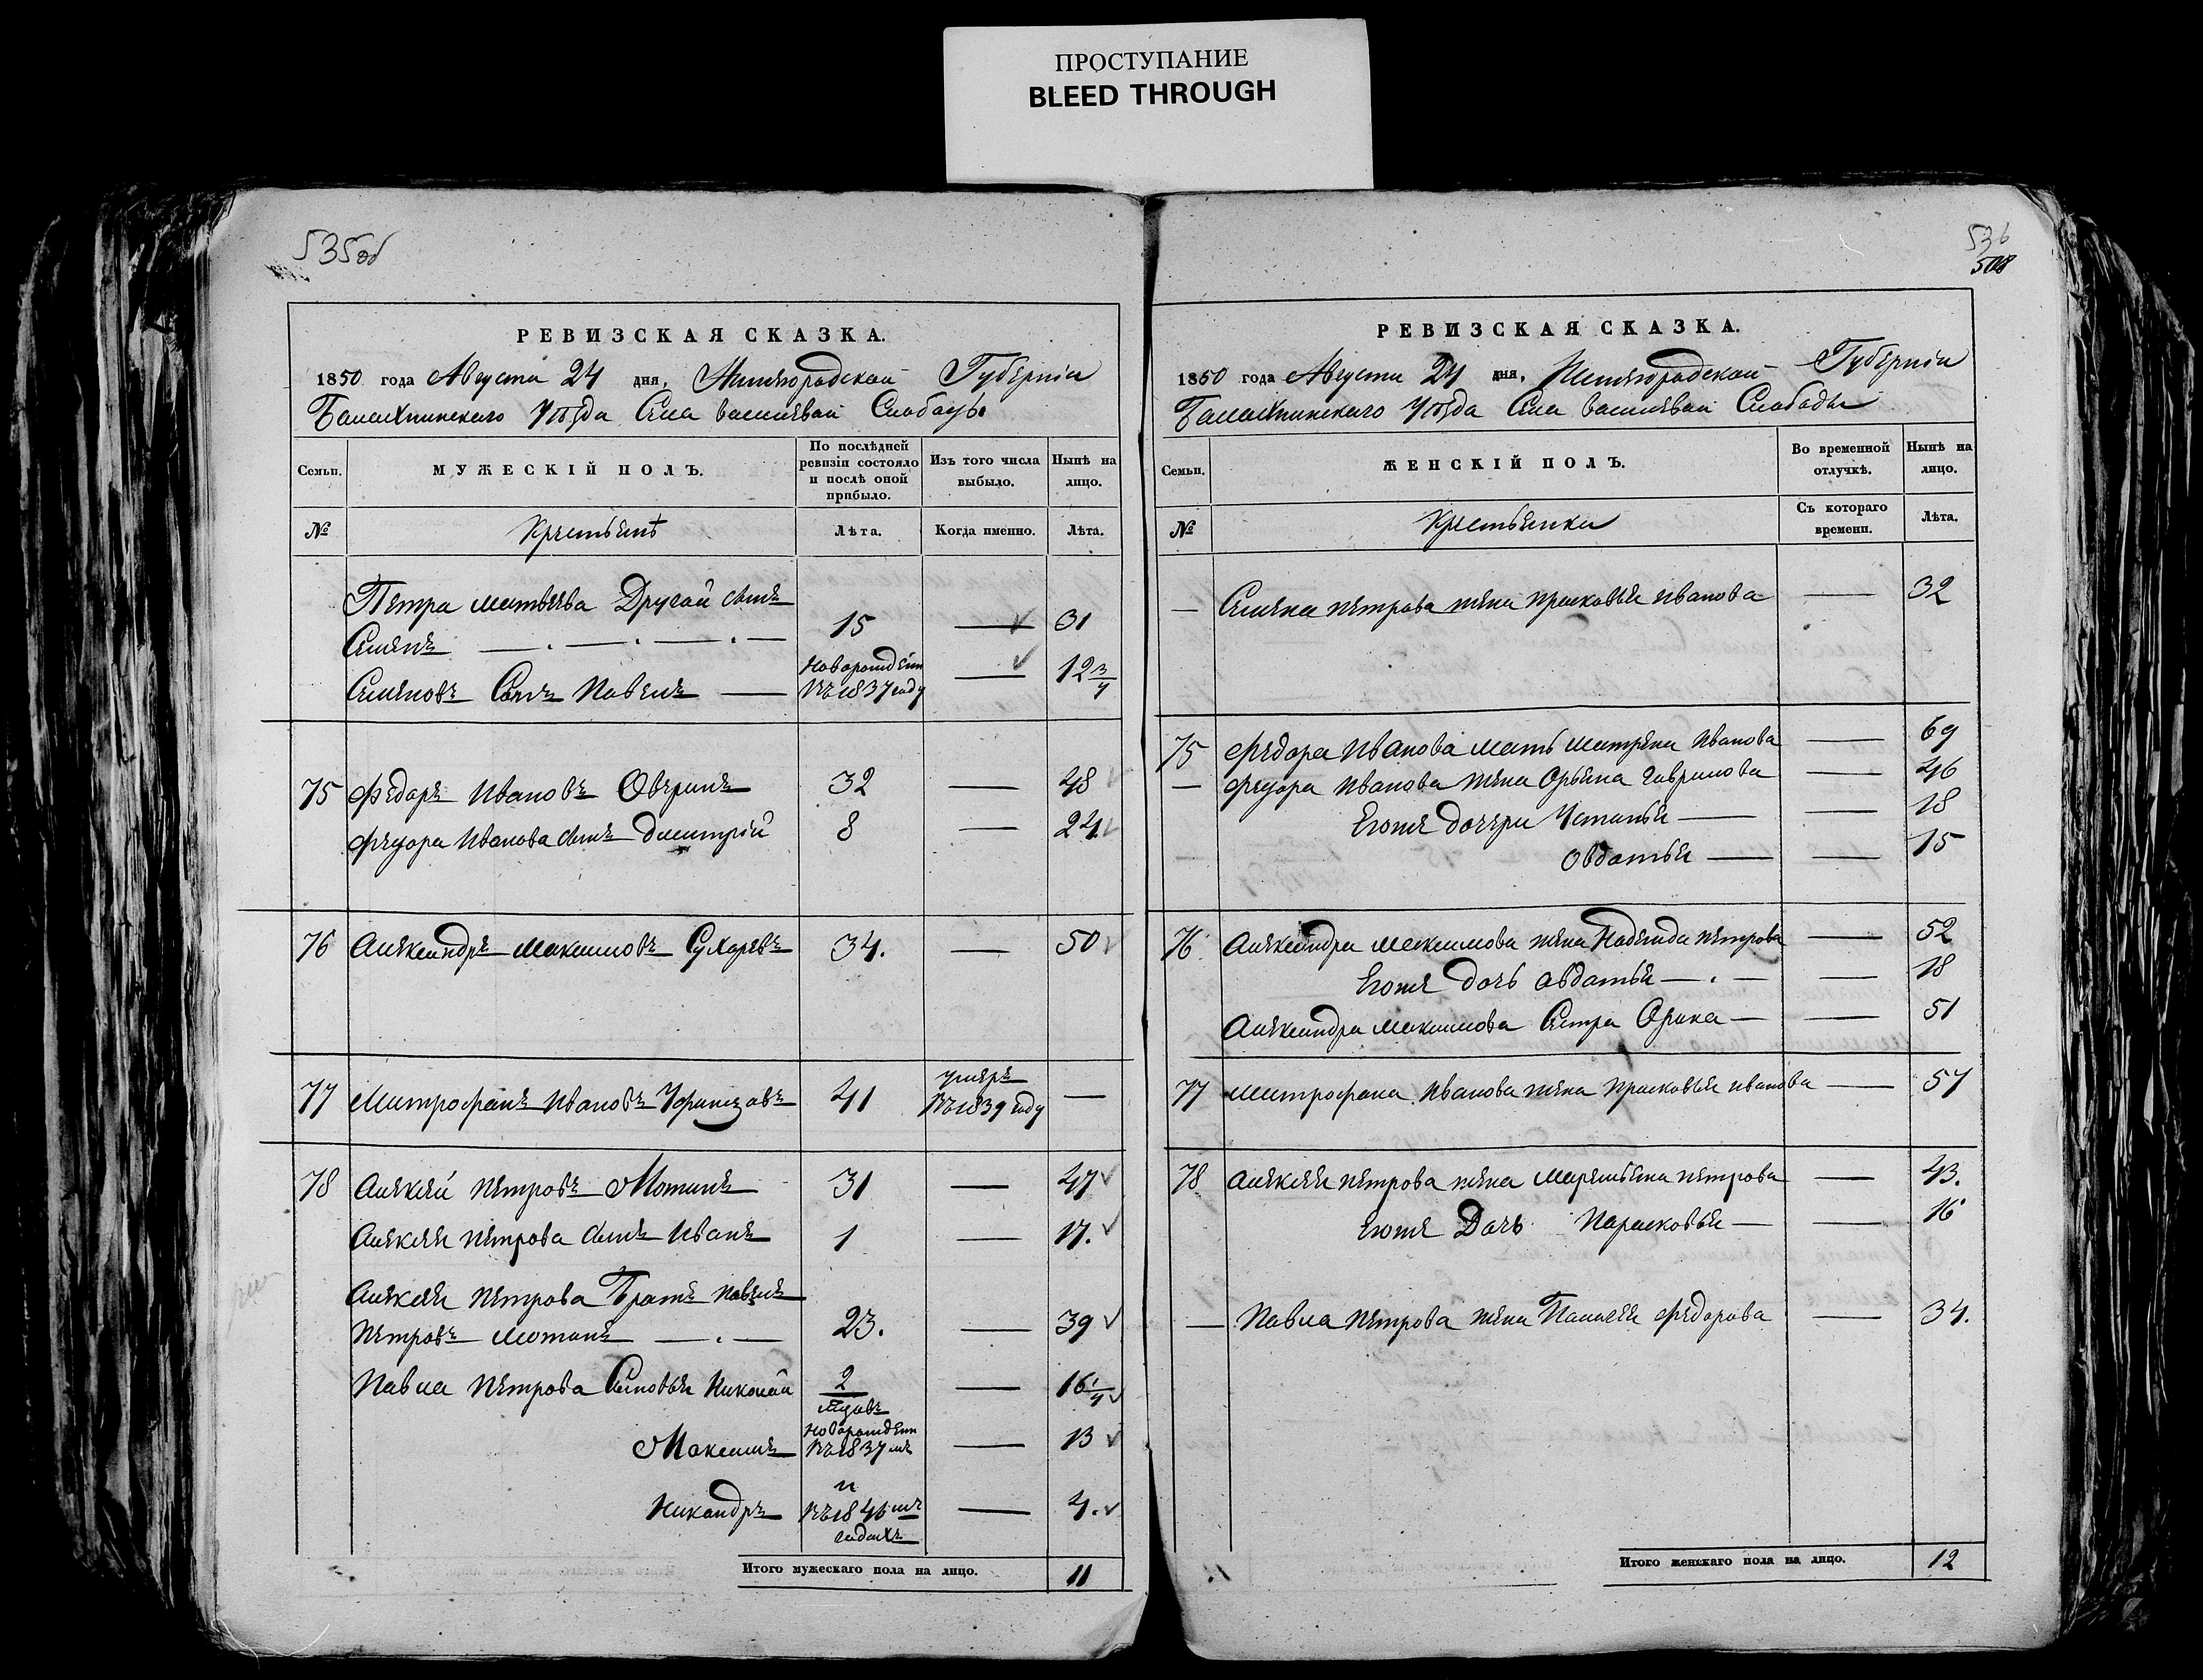 ПРОСТУПАНИЕ
BLEED THROUGH
535об
РЕВИЗСКАЯ СКАЗКА.
1850 года Августа 24 дня, Нижегородской Губернiи
Балахнинскаго Уѣзда Села Василевой Слободы
Семьи. МУЖЕСКIЙ ПОЛЪ. По послѣдней ревизiи состояло и послѣ оной прибыло. Изъ того числа выбыло. Нынѣ на лицо.
№ Крестьянѣ Лѣта. Когда именно. Лѣта.
Петра Матвѣева Другой сынъ
Семенъ 15 — 31
Семеновъ Сынъ Павелъ — Новорожден въ 1837 году — 12 3/4
75 Федоръ Ивановъ Оверинъ 32 — 48
Федора Иванова сынъ Дмитрiй 8 — 24
76 Александръ Максимовъ Сухаревъ 34. — 50
77 Митрофанъ Ивановъ 41 умеръ въ 1839 году —
78 Алексей Петровъ Мотинъ 31 — 47
Алексея Петрова сынъ Иванъ 1 — 17.
Алексея Петрова Братъ Павелъ
Петровъ Мотинъ — . — 23. — 39
Павла Петрова Сыновья Николай 2 — 16 1/4
Новорожден
Максимъ въ 1837 мъ — 13
и
Никандръ въ 1846 мъ — 4.
годахъ
Итого мужескаго пола на лицо. 11
536
508
РЕВИЗСКАЯ СКАЗКА.
1850 года Августа 24 дня, Нижегородской Губернiи
Балахнинскаго Уѣзда Села Василевой Слободы
Семьи. ЖЕНСКIЙ ПОЛЪ. Во временной отлучкѣ. Нынѣ на лицо.
№ Крестьянки Съ котораго времени. Лѣта.
— Семена Петрова жена Прасковья Иванова — 32
75 Федора Иванова мать Матрена Иванова — 69
— Федора Иванова жена Орина Гаврилова — 46
Егоже дочери Устинья — — 18
Овдотья — — 15
76 Александра Максимова жена Надежда Петрова — 52
Егоже дочь Авдотья — . — — 18
Александра Максимова Сестра Орина — — 51
77 Митрофана Иванова жена Прасковья Иванова — 57
78 Алексея Петрова жена Маремьяна Петрова — 43.
Егоже Дочь Парасковья — — 16
— Павла Петрова жена Пелагея Федорова — 34.
Итого женскаго пола на лицо. 12